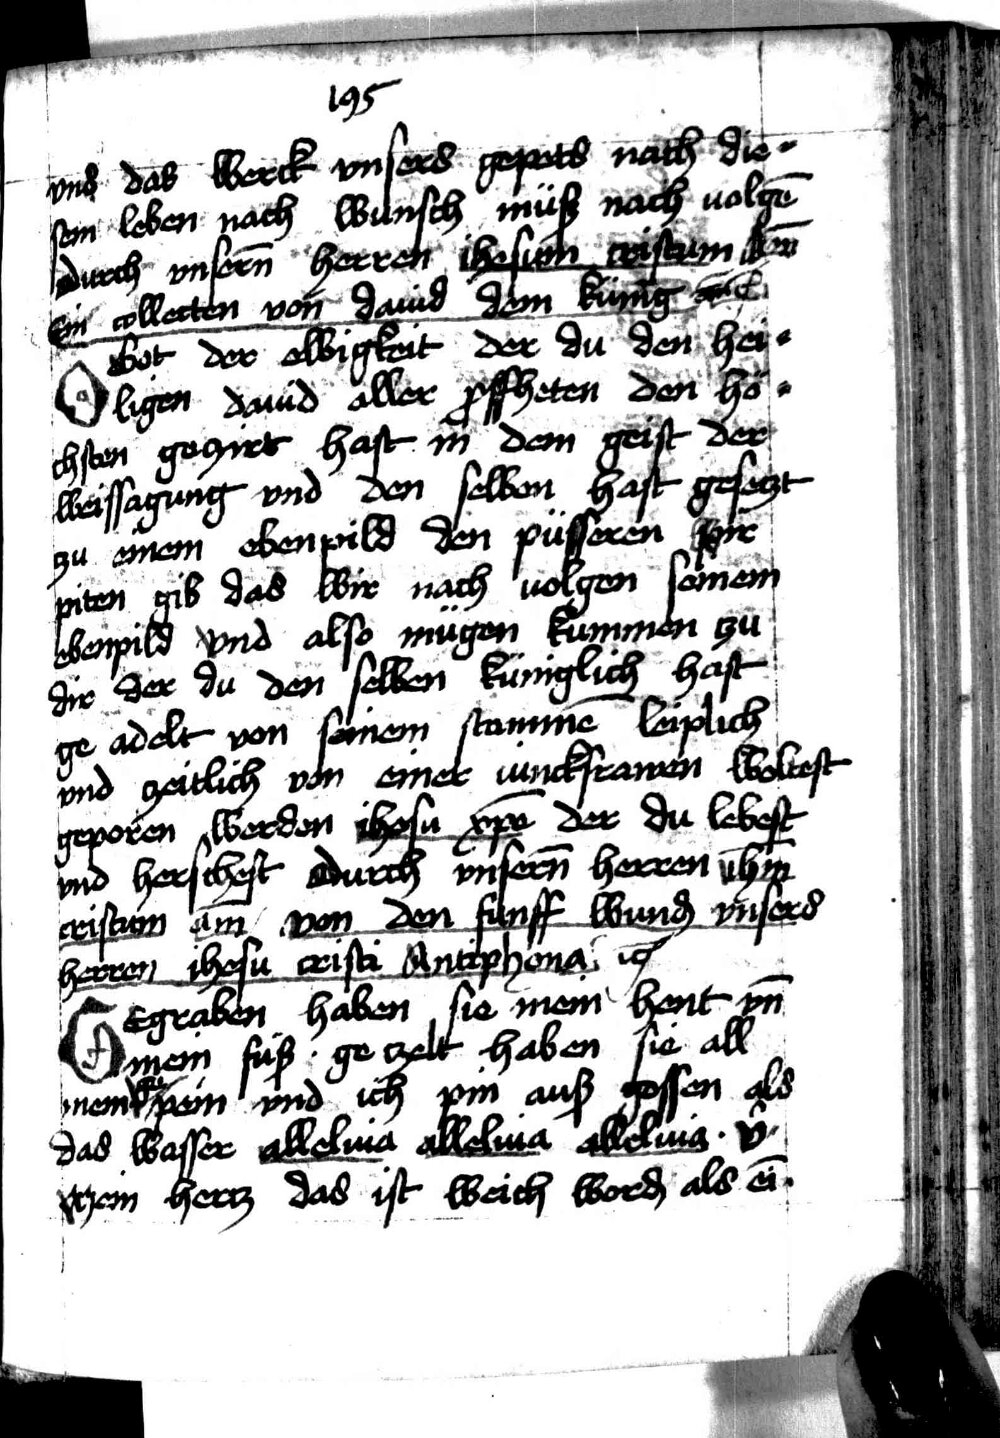 195
vnd das werck vnsers gepets nach die-
sem leben nach wunsch müß nach uolgē
durch vnsern̄ herren ihesum cristum
Ein collecten von dauid dem künig
O Got der ewigkeit der du den hei-
ligen dauid aller ꝓffheten den hö-
chsten gezirt hast in dem geist der
weissagung vnd den selben hast gesetzt
zu einem ebenpild den püsseren wir
piten gib das wir nach uolgen seinem
ebenpild vnd also mügen kummen tzu
dir der du den selben küniglich hast
ge adelt von seinem stammē leiplich
vnd zeitlich von einer iunckfrawen woltest
geporen werden ihesu xp̄e der du lebest
vnd herschest durch vnsern̄ herren ihm̄
cristum am̄ von den funff wund vnsers
herren ihesu cristi Antiphona
GEgraben haben sie mein hent vn̄
mein füß · ge tzelt haben sie all
mein pein vnd ich pin auß gossen als
das wasser alleluia alleluia alleluia · v̂·
Mein hertz das ist weich word als ei̅·